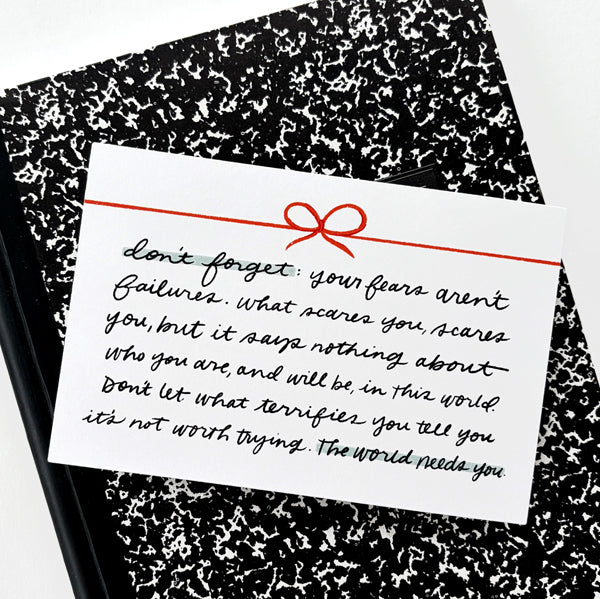 don't forget: your fears aren't
failures. what scares you, scares
you, but it says nothing about
who you are, and will be, in this world.
Don't let what terrifies you tell you
it's not worth trying. The world needs you.